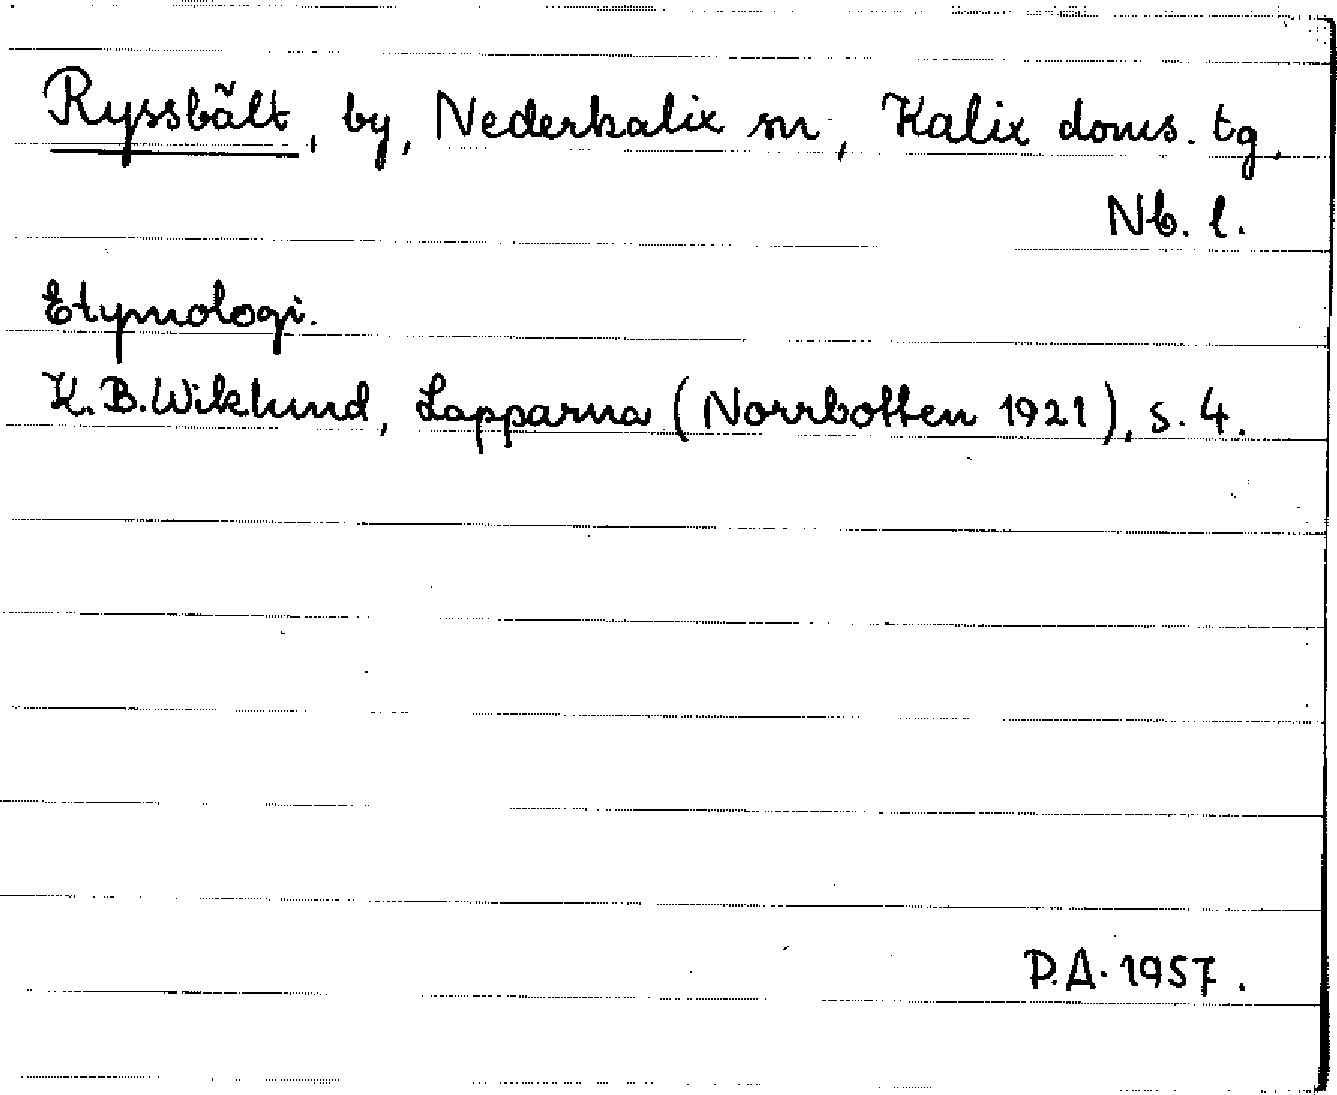 Ryssbält, by, Nederkalix sn, Kalix doms. tg.
Nb. l.
Etymologi.
K. B. Wiklund, Lapparna (Norrbotten 1921), s. 4.
P.A. 1957.